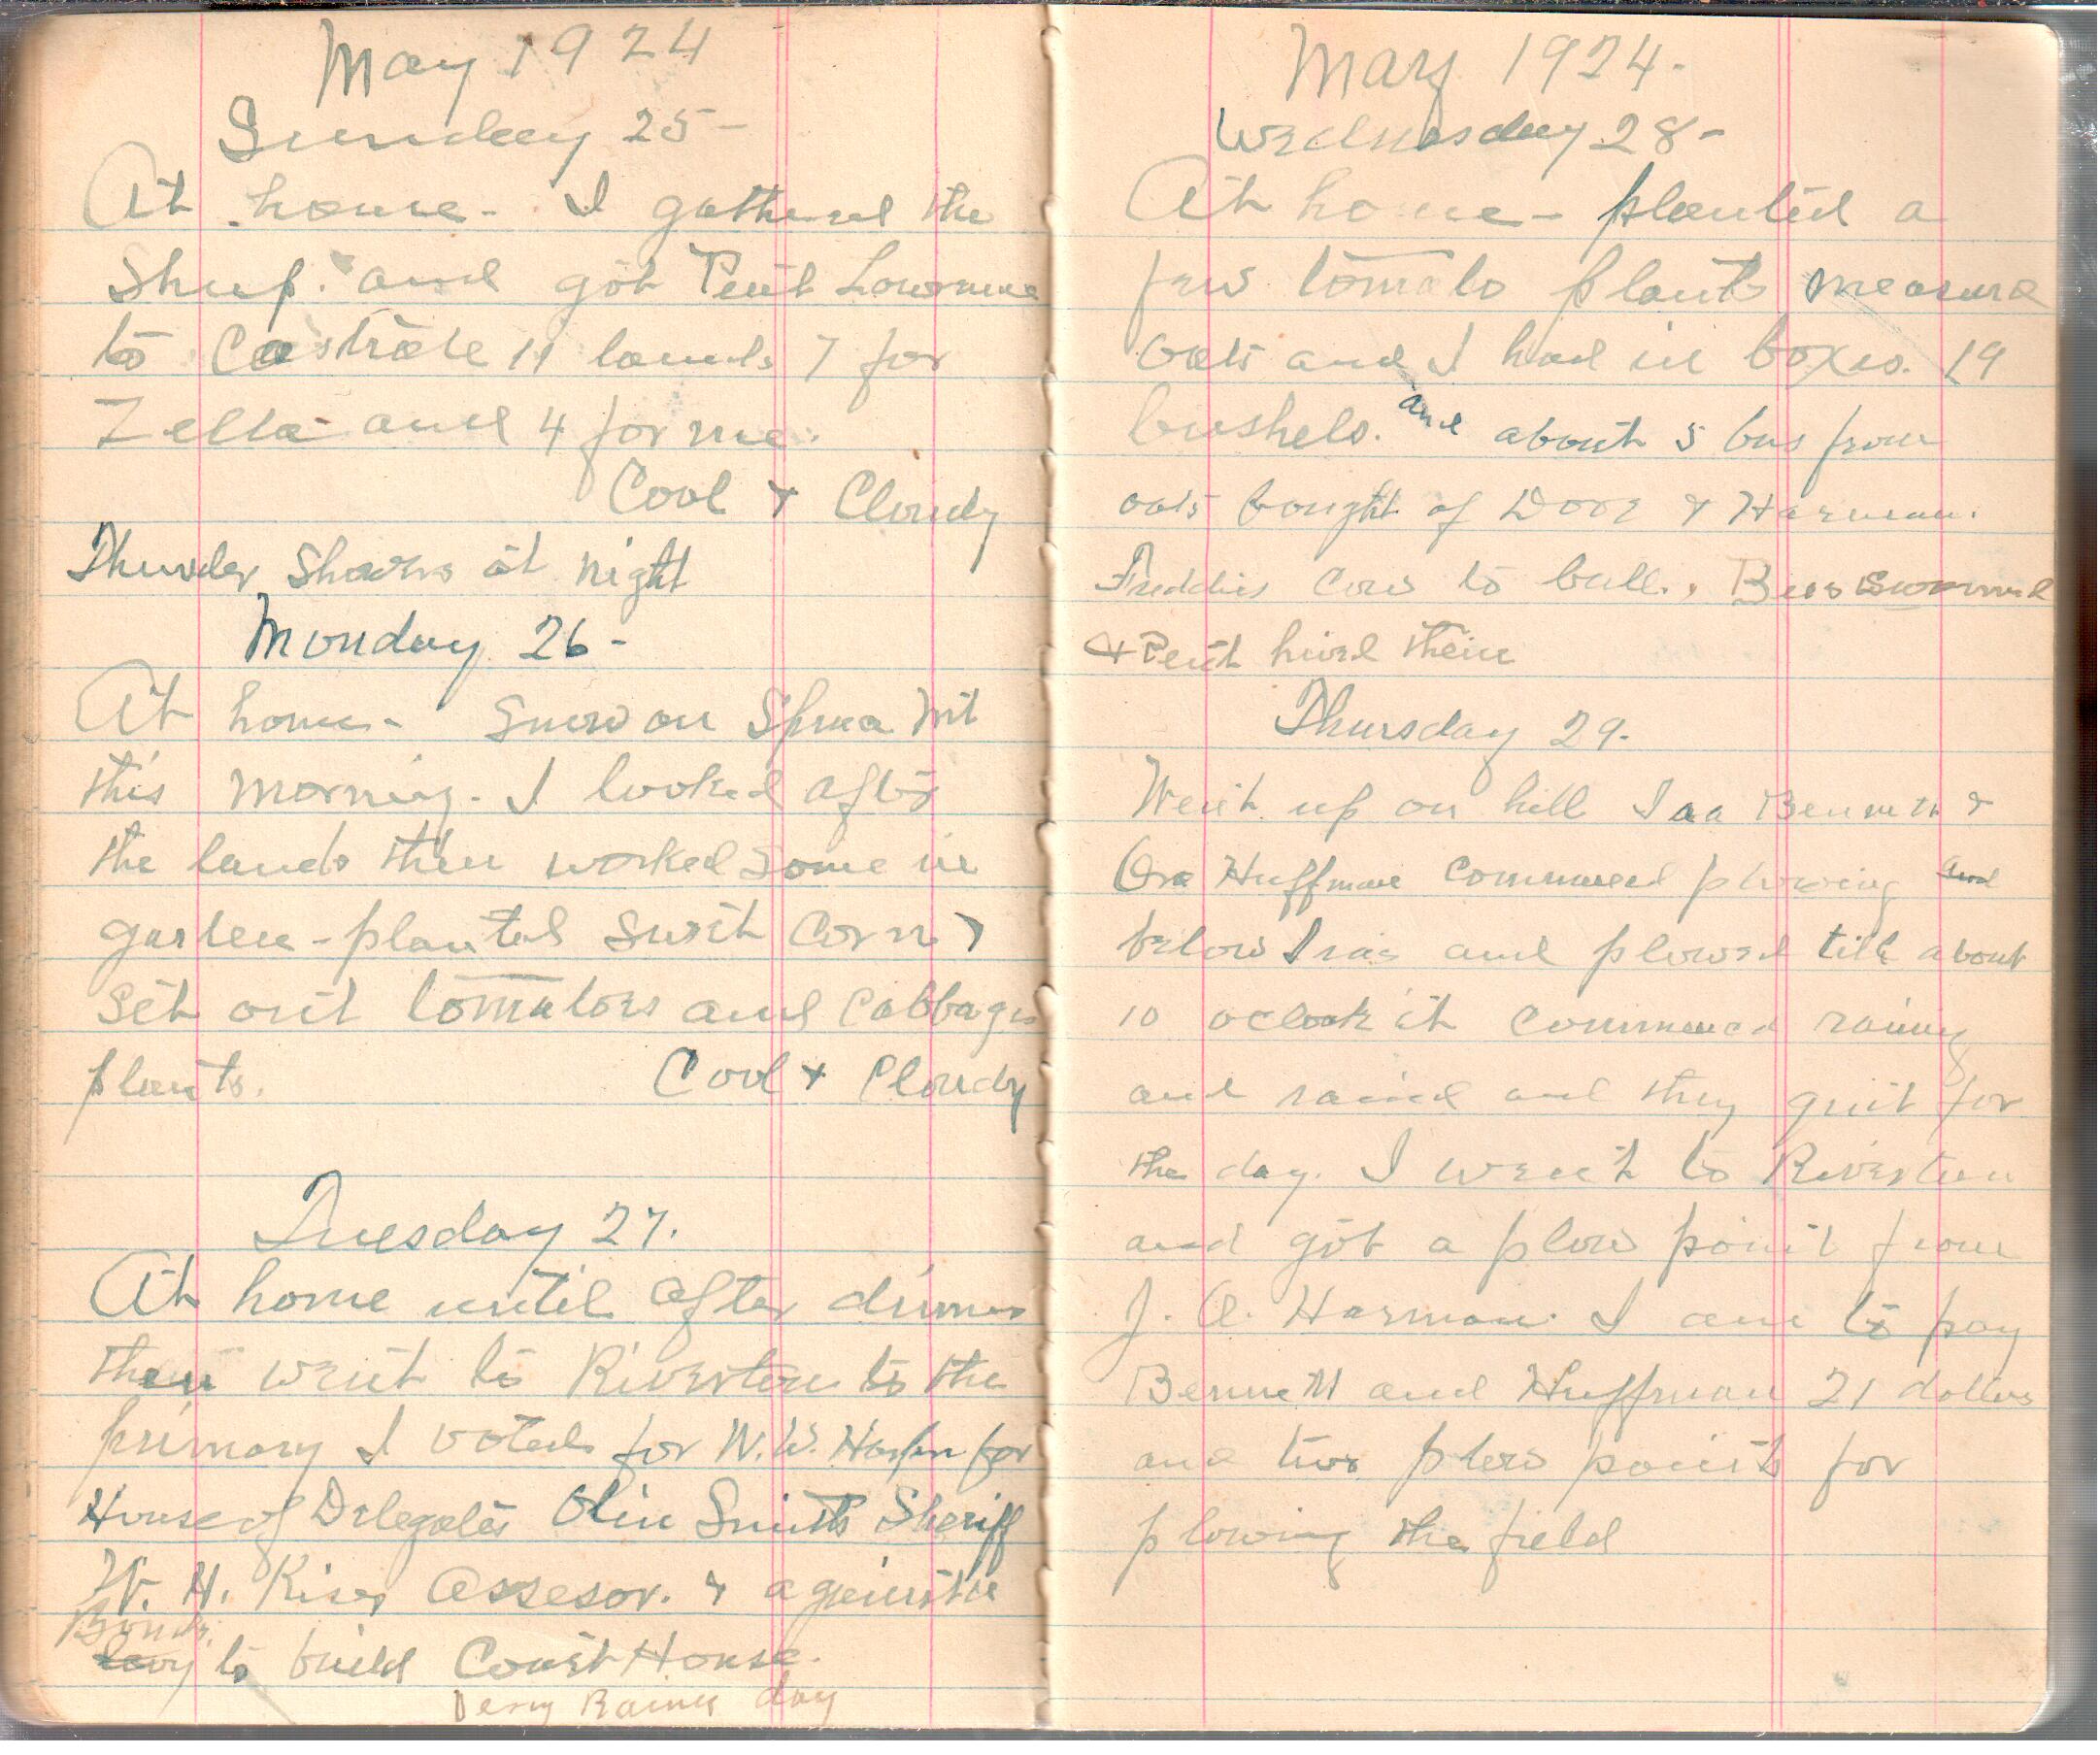 May 1924
Sunday 25-
At home- I gathered the
Sheep. and got Peut Lowrance
to Castrate 11 lambs 7 for
Zella and 4 for me.
Cool & Cloudy
Thunder Showers at night
Monday 26-
At home- Snow on Spruce Mt
this morning. I looked after
the lambs then worked some in
garden-planted sweet corn &
set out tomatoes and cabbage
plants. Cool & Cloudy
Tuesday 27.
At home until after dinner
then went to Riverton to the
primary I voted for W.W. Harper for
House of Delegates Olin Smith Sheriff
W. H. Kiser Assesor. & against the
Bonds.
levy to build Court House.
Very Rainy day
May 1924.
Wednesday 28-
At home- planted a
few tomato plants measure
oats and I had in boxes. 19
bushels. and about 5 bus from
oats bought of Dove & Harman.
Freddies cow to bull. Bees swarmed
& Peut hived them
Thursday 29.
Went up on hill Isaa Bennett &
Ora Huffman commenced plowing and
below Iras and plowed till about
10 oclock it commenced raining
and rained and they quit for
the day. I went to Riverton
and got a plow point from
J. A. Harman. I am to pay
Bennett and Huffman 21 dollars
and two plow points for
plowing the field